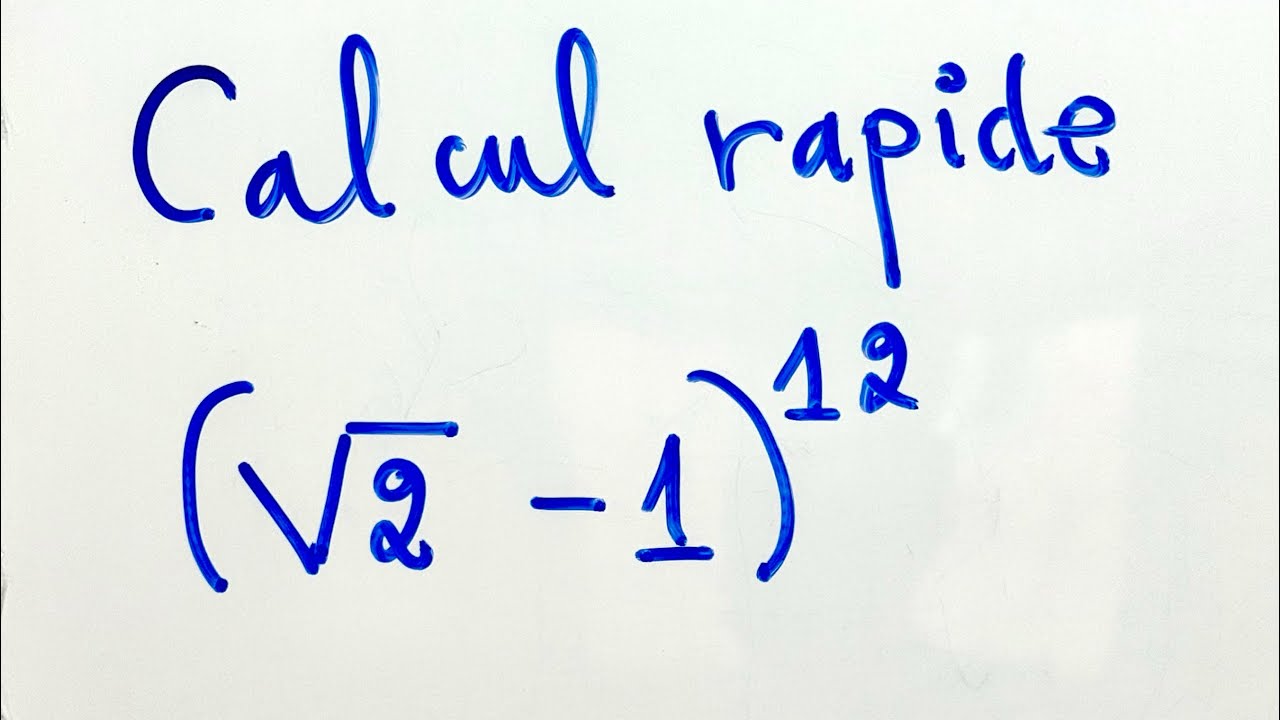 Calcul rapide
(√2 - 1)¹²